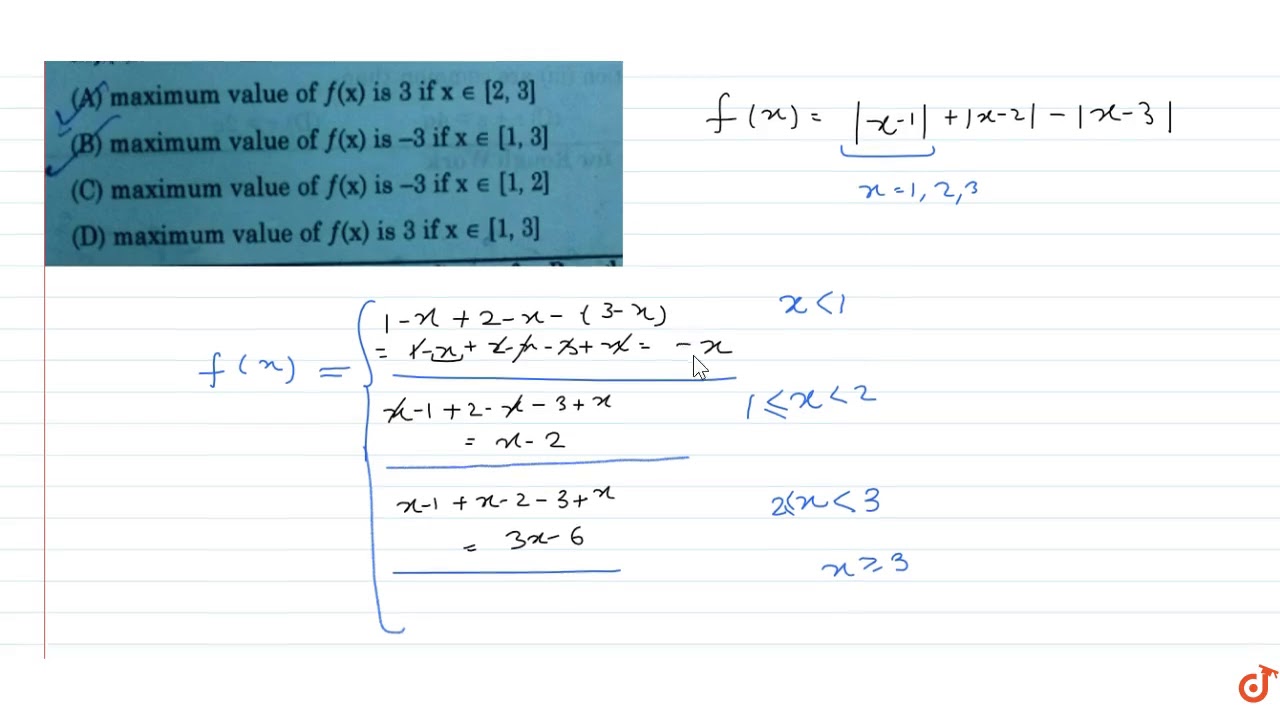 (A) maximum value of f(x) is 3 if x ∈ [2, 3]
(B) maximum value of f(x) is –3 if x ∈ [1, 3]
(C) maximum value of f(x) is –3 if x ∈ [1, 2]
(D) maximum value of f(x) is 3 if x ∈ [1, 3]
f(x) = |x-1| + |x-2| - |x-3|
x = 1, 2, 3
f(x) =
1-x + 2-x - (3-x) x < 1
= 1-x + 2-x - 3 + x = -x
x-1 + 2-x - 3 + x 1 ≤ x < 2
= x-2
x-1 + x-2 - 3 + x 2 ≤ x < 3
= 3x-6
x ≥ 3